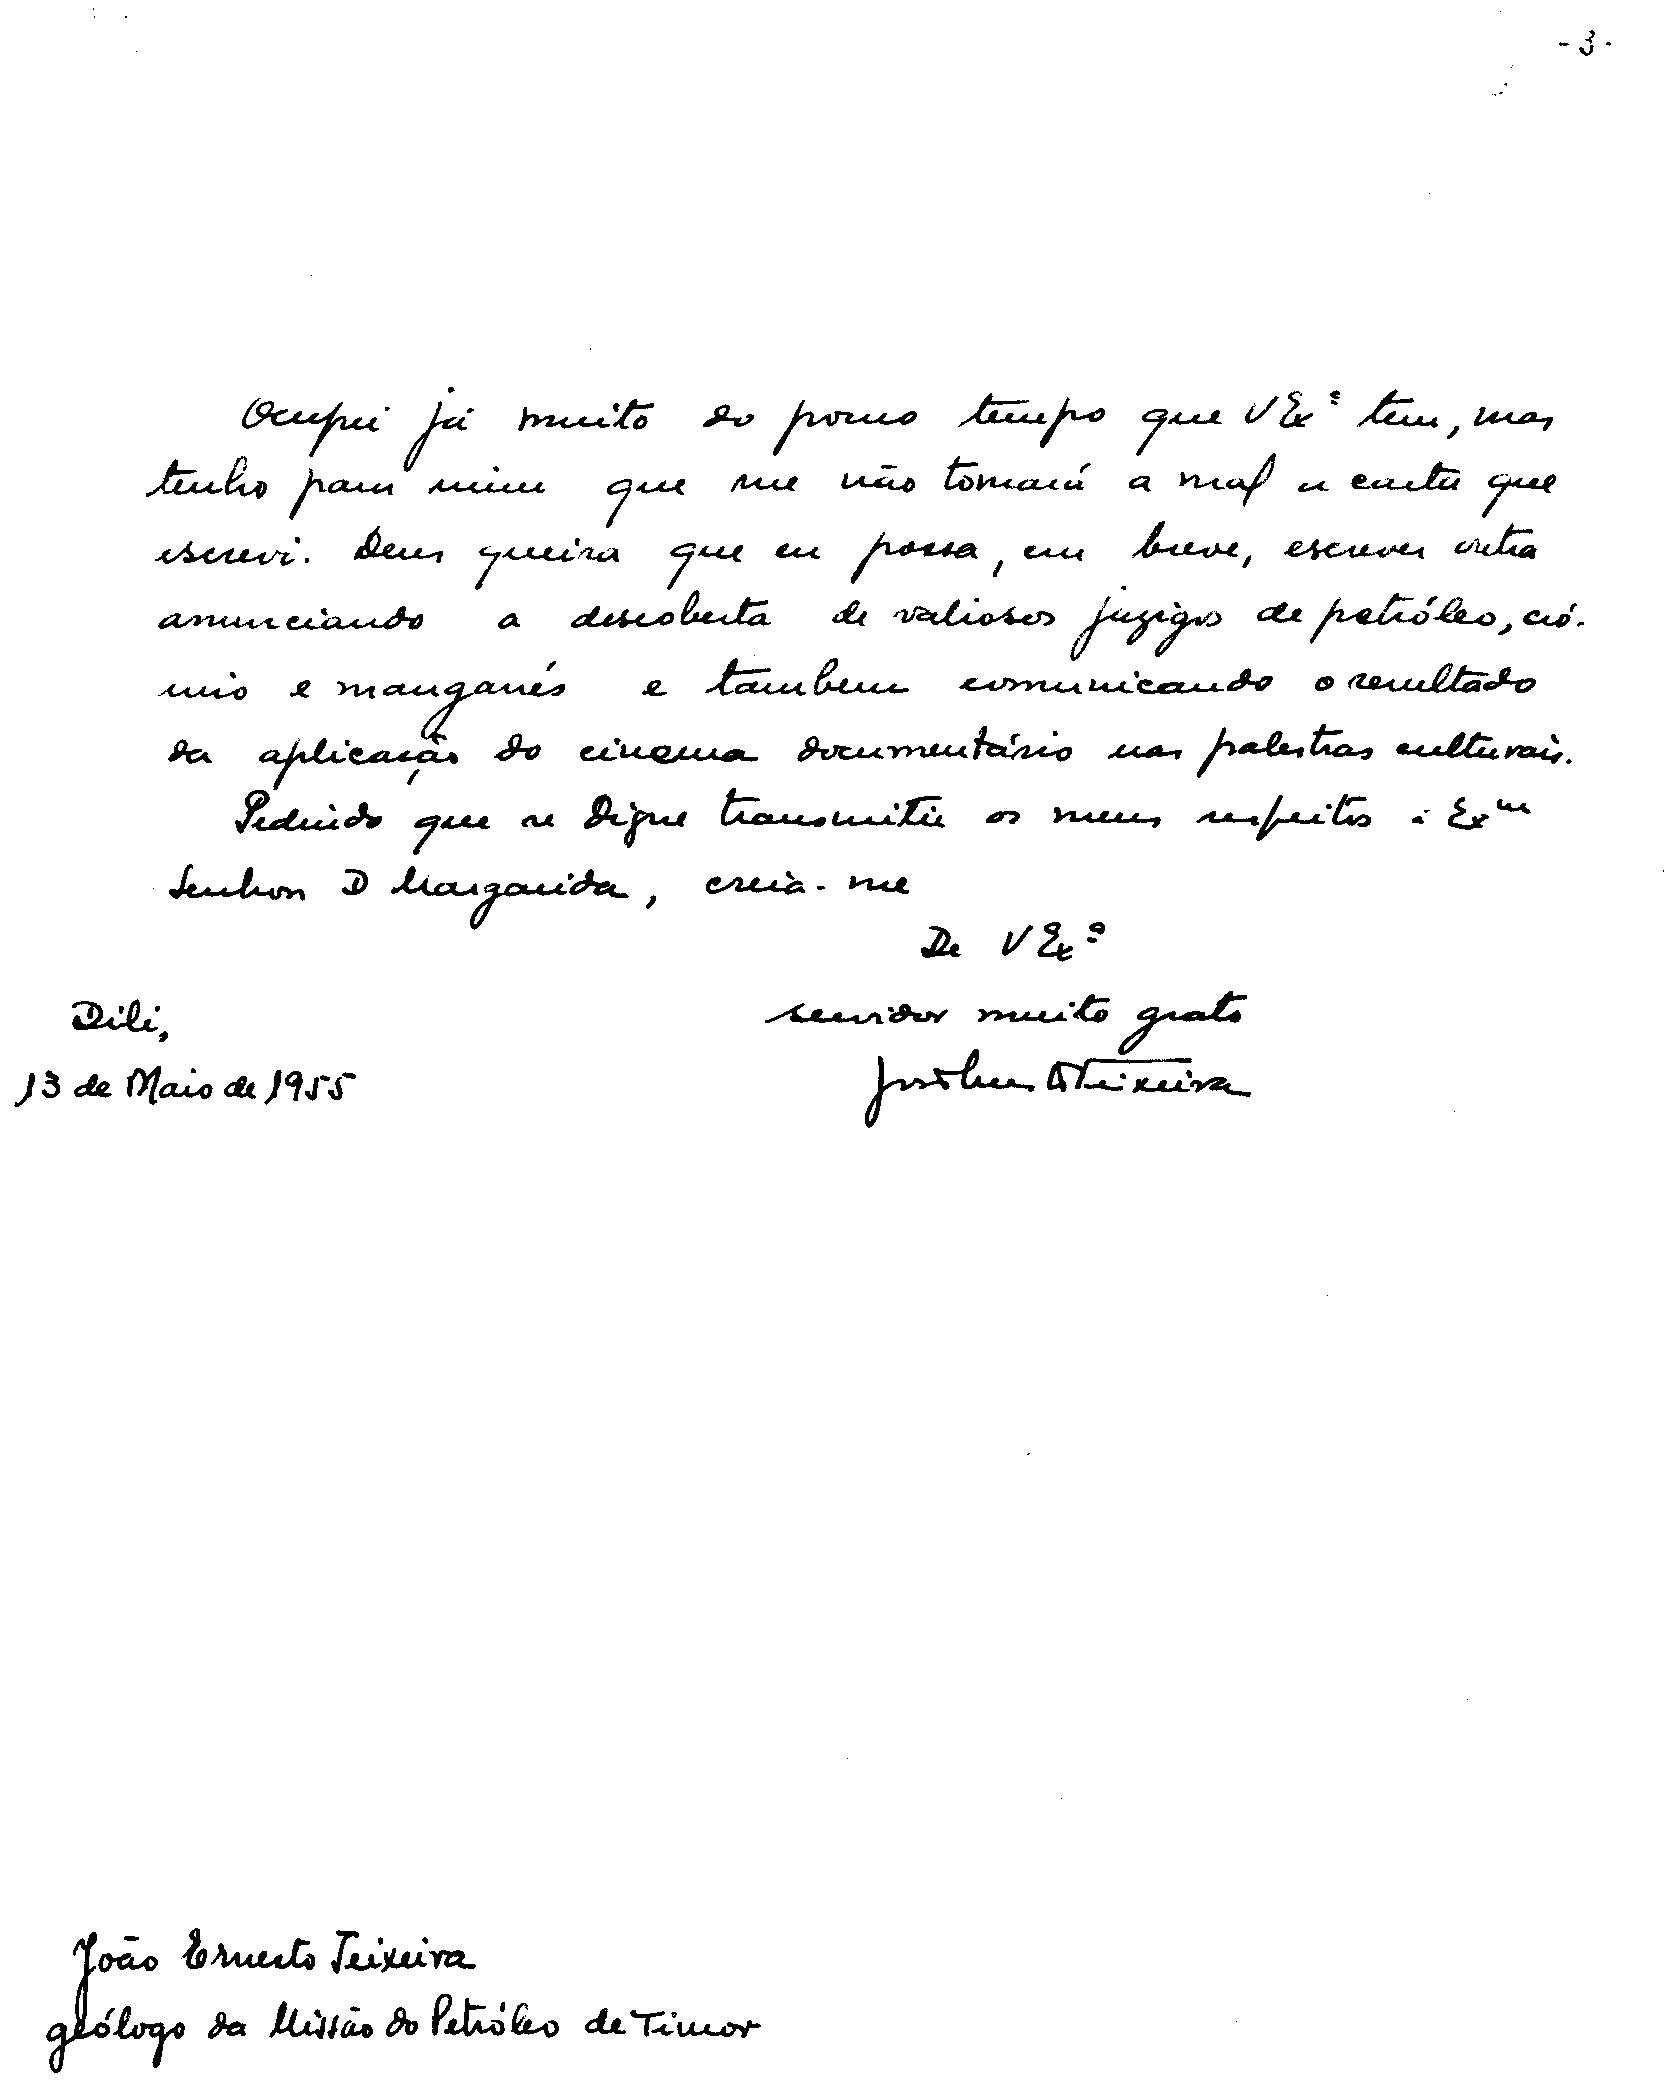 - 3 -
Ocupei já muito do pouco tempo que V Exª tem, mas
tenho para mim que me não tomará a mal a carta que
escrevi. Deus queira que eu possa, em breve, escrever outra
anunciando a descoberta de valiosos jazigos de petróleo, cró-
mio e manganés e tambem comunicando o resultado
da aplicação do cinema documentário nas palestras culturais.
Pedindo que se digne transmitir os meus respeitos à Exma
Senhora D Margarida, creia-me
De V Exª
servidor muito grato
Teixeira
Dili,
13 de Maio de 1955
João Ernesto Teixeira
geólogo da Missão do Petróleo de Timor